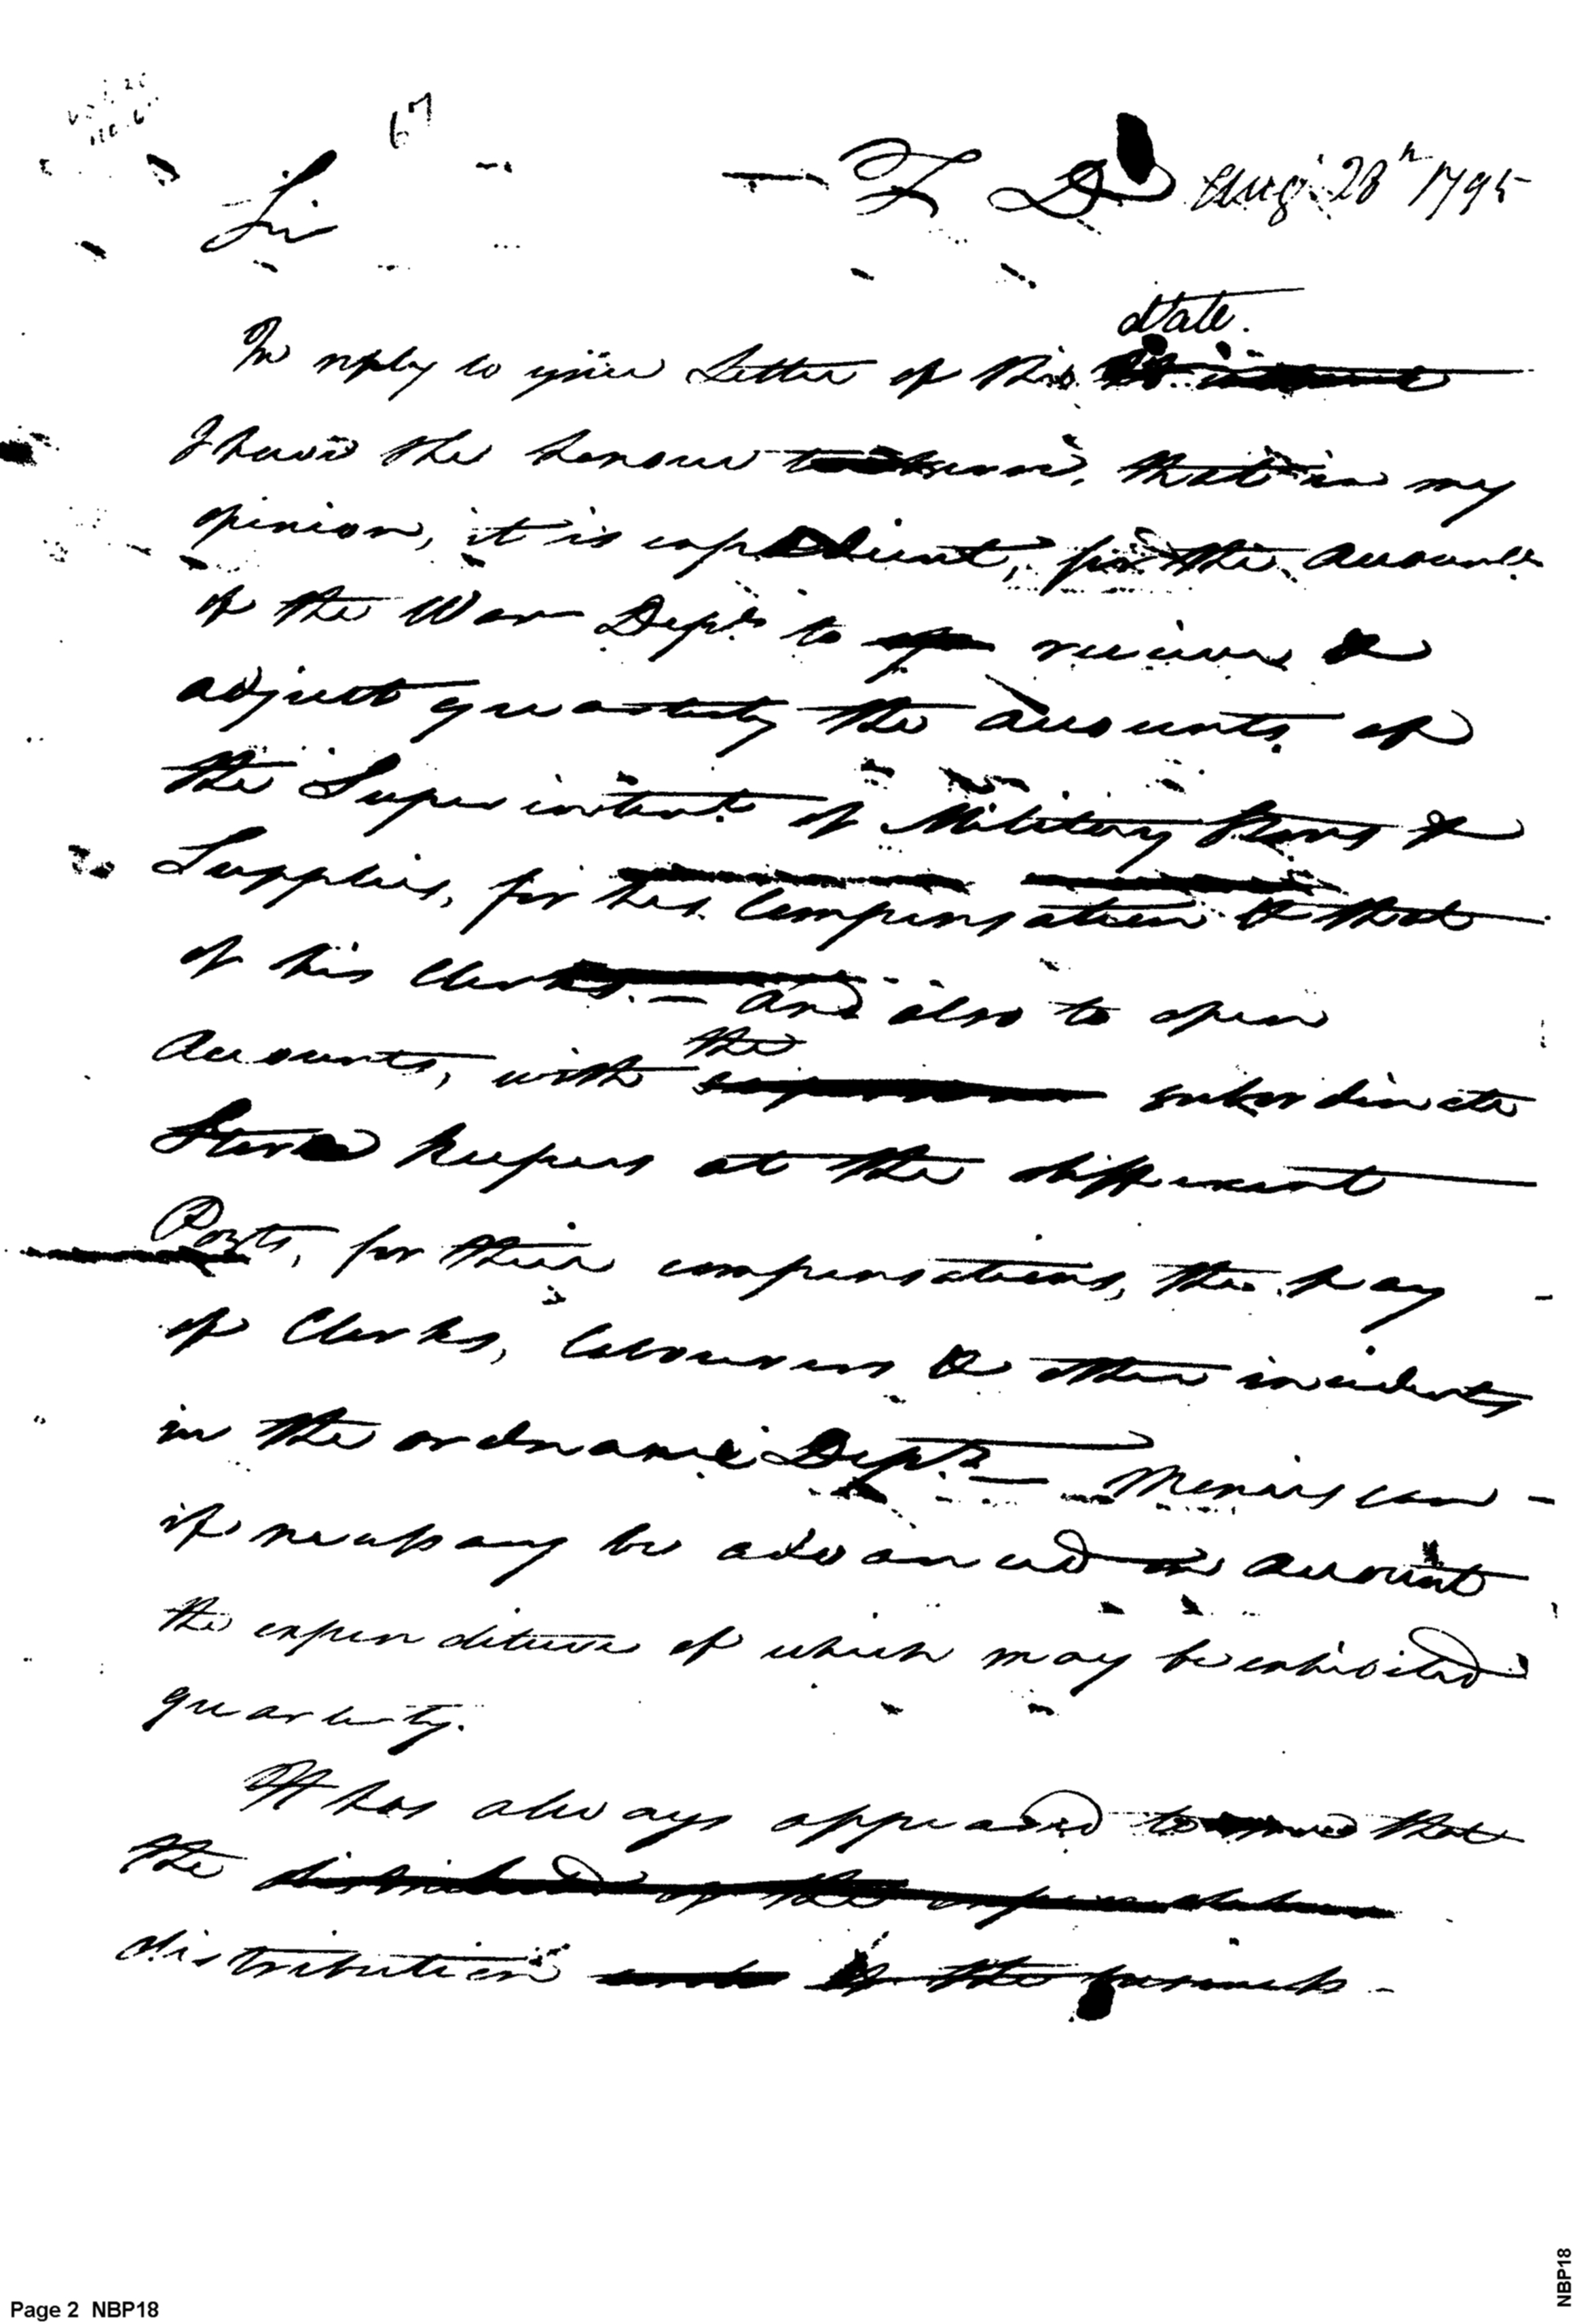 67
Sir
— T D Aug. 28th 1795
date.
In reply to your Letter of this
I have the honour to that in my
opinion, it is expedient, for the Accountant
of the War Dept. to receive &
adjust quarterly the Accounts of
the Superintendt. of Military Stores &
Supplies, for his Compensation & that
of his Clerks. — And also to open
the
Accounts, with subordinate
Store keepers at the different
Posts, for their compensations, the pay
of Clerks, labourers & other incidents
in the ordnance Dept. — Monies can
if necessary be advanced on account
the expenditure of which may be exhibited
quarterly.
It has always appeared to me that
the distribution of the expenditures
distribution of the
Page 2 NBP18
NBP18